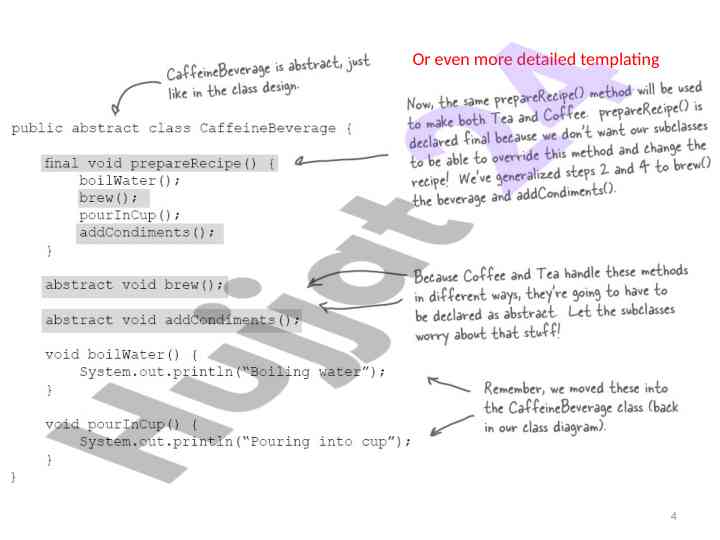 Or even more detailed templating
CaffeineBeverage is abstract, just
like in the class design.
public abstract class CaffeineBeverage {
final void prepareRecipe() {
boilWater();
brew();
pourInCup();
addCondiments();
}
Now, the same prepareRecipe() method will be used
to make both Tea and Coffee. prepareRecipe() is
declared final because we don't want our subclasses
to be able to override this method and change the
recipe! We've generalized steps 2 and 4 to brew()
the beverage and addCondiments().
abstract void brew();
abstract void addCondiments();
Because Coffee and Tea handle these methods
in different ways, they're going to have to
be declared as abstract. Let the subclasses
worry about that stuff!
void boilWater() {
System.out.println(“Boiling water”);
}
void pourInCup() {
System.out.println(“Pouring into cup”);
}
}
Remember, we moved these into
the CaffeineBeverage class (back
in our class diagram).
4
Hujjat 24